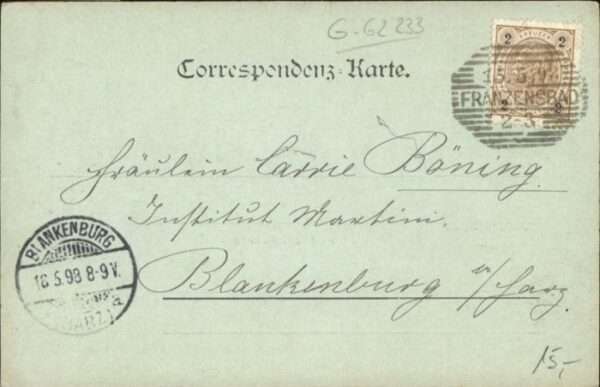 G-G2 233
Correspondenz-Karte.
2 KREUZER 2
15.5.9
FRANZENSBAD
2-3
Fräulein Carrie Böning.
Institut Martini.
Blankenburg a/Harz.
BLANKENBURG
16.5.98 8-9V.
(HARZ)
15,-